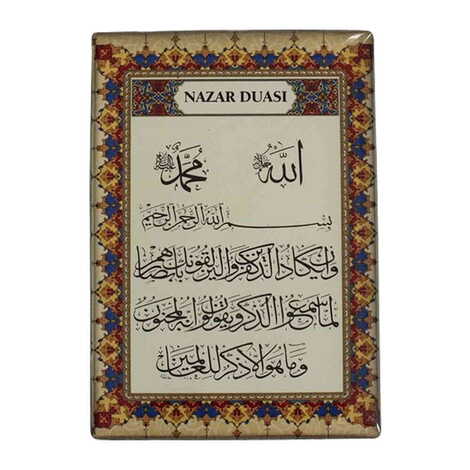 NAZAR DUASI
الله جل جلاله محمد
بسم الله الرحمن الرحيم
وإن يكاد الذين كفروا ليزلقونك بأبصارهم
لما سمعوا الذكر ويقولون إنه لمجنون
وما هو إلا ذكر للعالمين